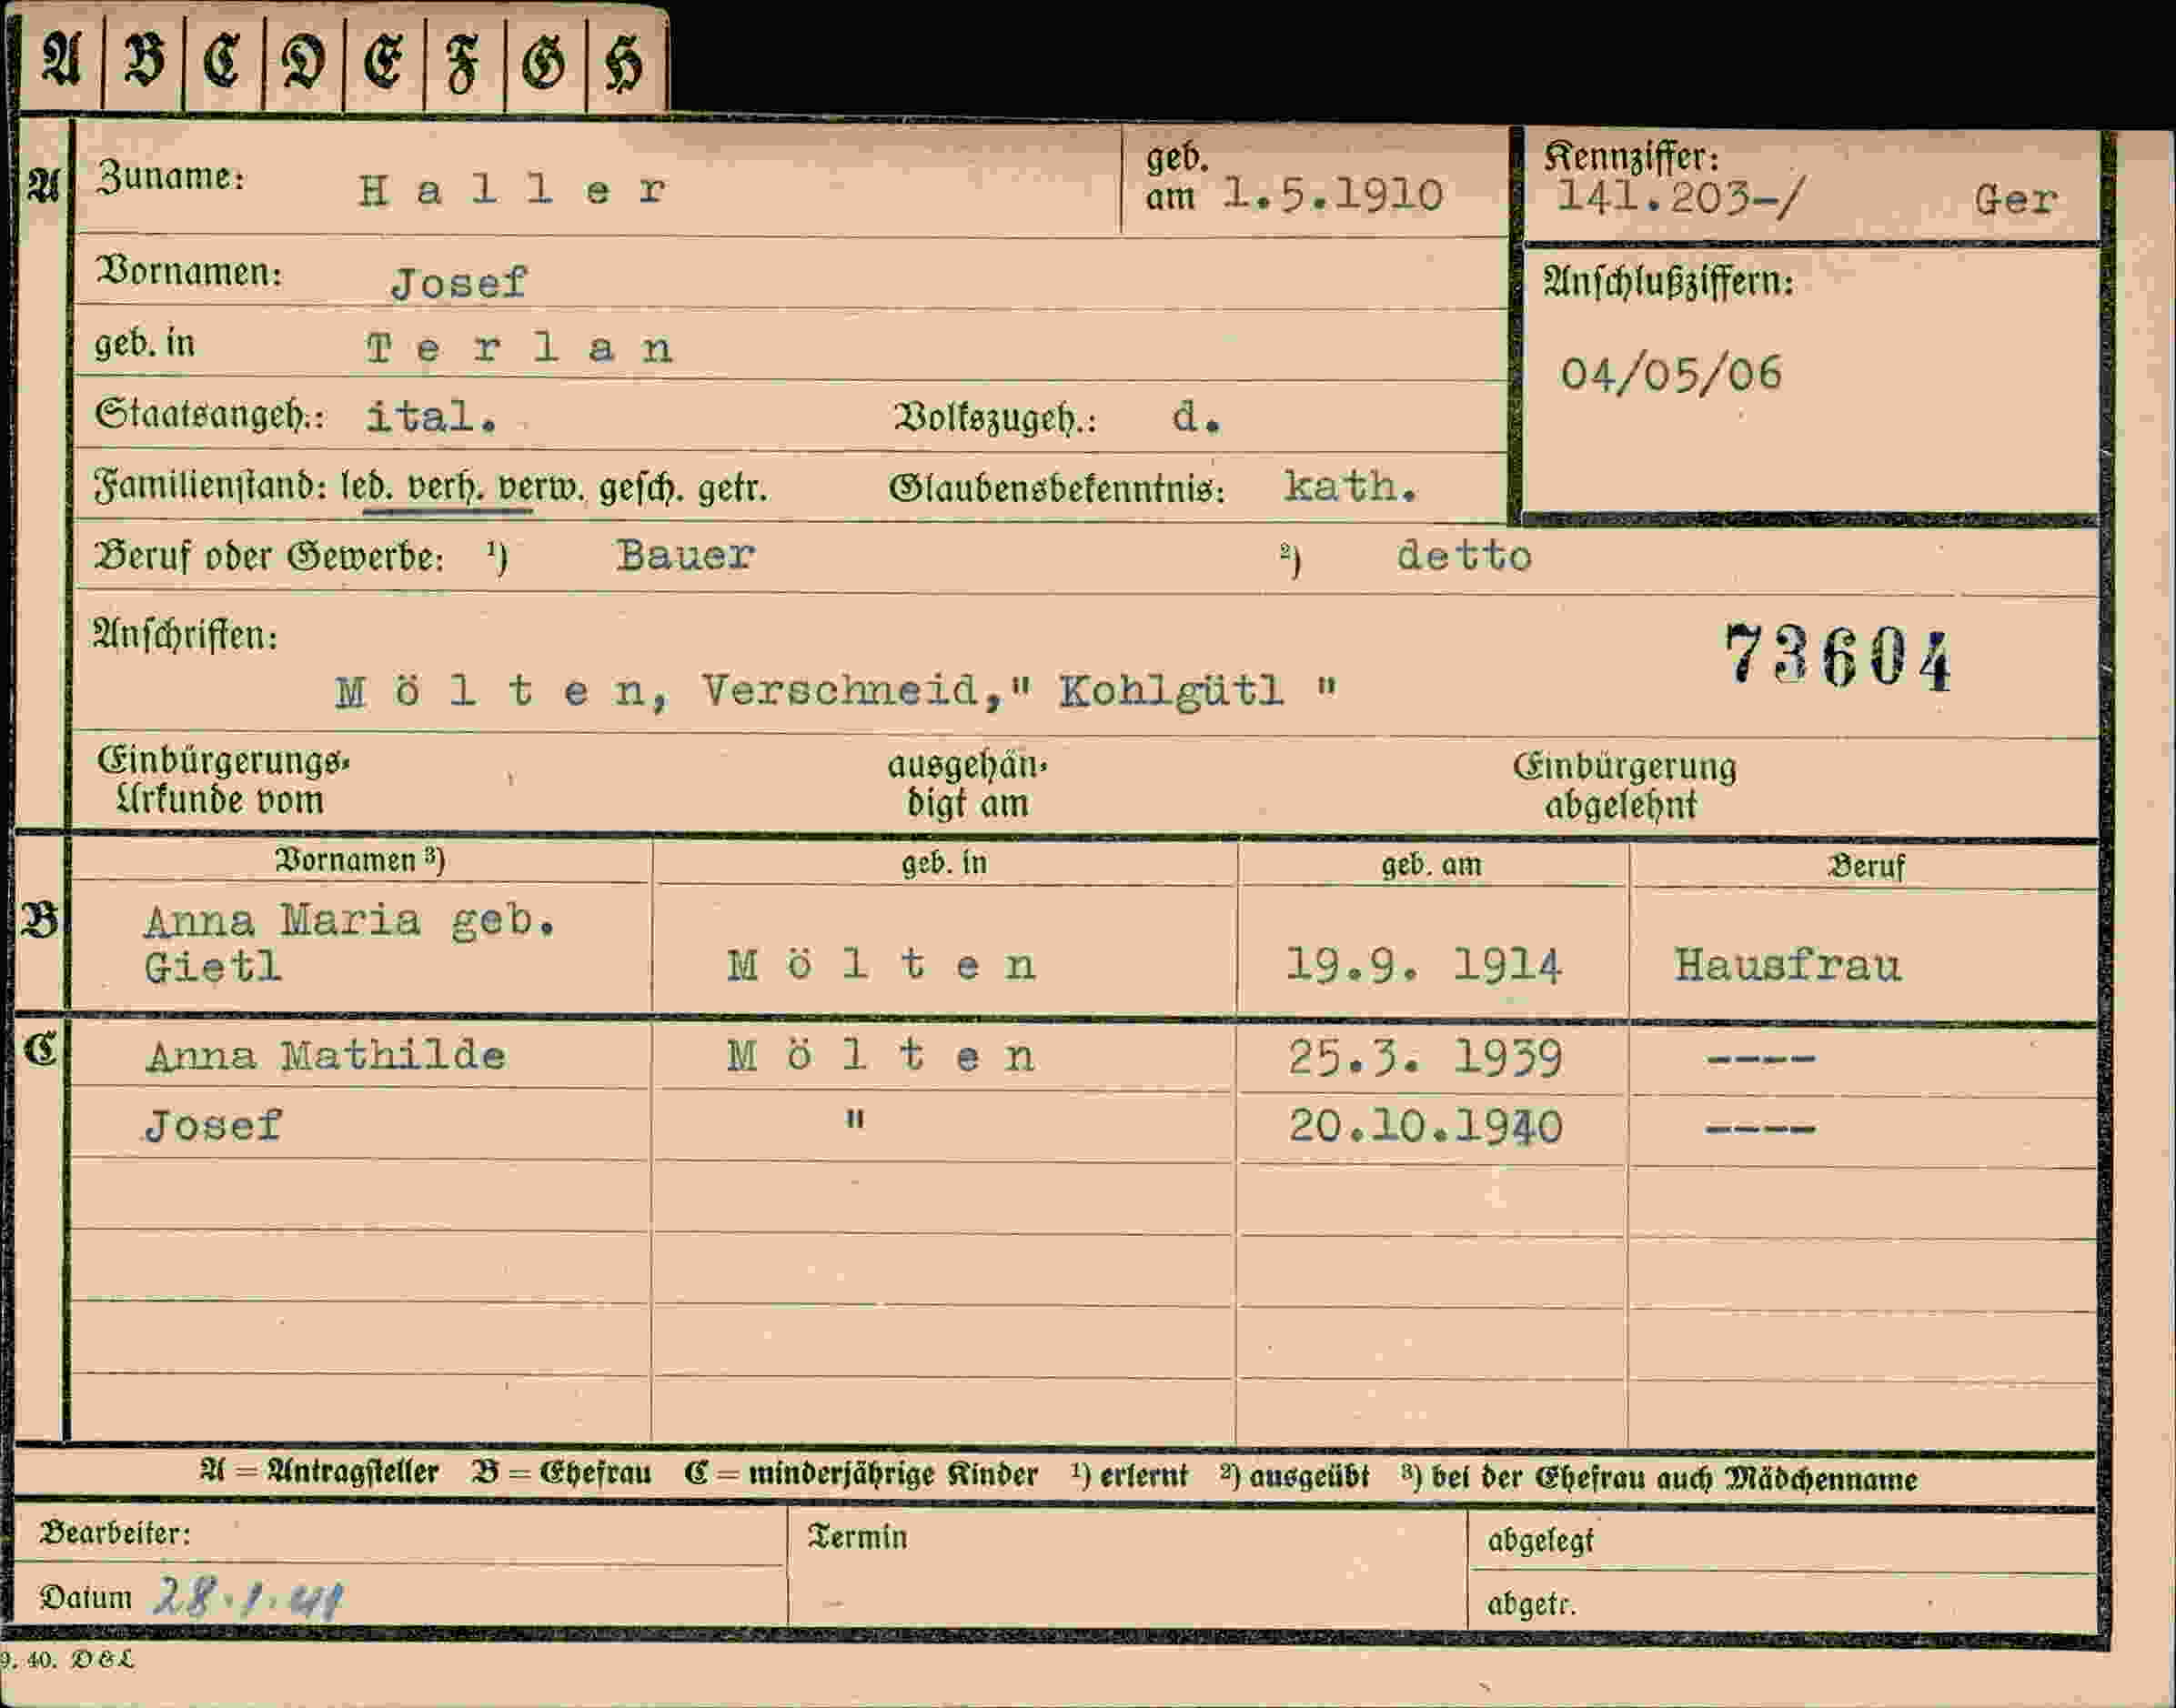 A B C D E F G H
A Zuname: Haller geb. am 1.5.1910
Kennziffer: 141.203-/ Ger
Vornamen: Josef
Anschlußziffern:
geb. in Terlan
04/05/06
Staatsangeh.: ital. Volkszugeh.: d.
Familienstand: led. verh. verw. gesch. getr. Glaubensbekenntnis: kath.
Beruf oder Gewerbe: ¹) Bauer ²) detto
Anschriften:
73604
Mölten, Verschneid," Kohlgütl "
Einbürgerungs- ausgehän- Einbürgerung
Urkunde vom digt am abgelehnt
Vornamen ³) geb. in geb. am Beruf
B Anna Maria geb.
Gietl Mölten 19.9. 1914 Hausfrau
C Anna Mathilde Mölten 25.3. 1939 ----
Josef " 20.10.1940 ----
A = Antragsteller B = Ehefrau C = minderjährige Kinder ¹) erlernt ²) ausgeübt ³) bei der Ehefrau auch Mädchenname
Bearbeiter: Termin abgelegt
Datum 28.1.41 abgetr.
9. 40. D&L